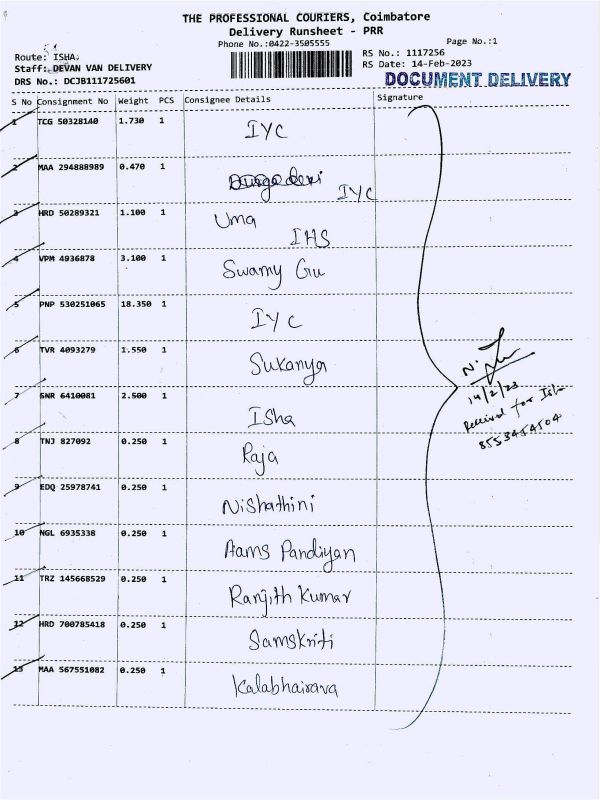 THE PROFESSIONAL COURIERS, Coimbatore
Delivery Runsheet - PRR
Phone No.:0422-3505555
Page No.:1
Route: ISHA.
RS No.: 1117256
Staff: DEVAN VAN DELIVERY
RS Date: 14-Feb-2023
DRS No.: DCJB111725601
DOCUMENT DELIVERY
S No Consignment No Weight PCS Consignee Details Signature
1 TCG 50328140 1.730 1 IYC
2 MAA 294888989 0.470 1 IYC
3 HRD 50289321 1.100 1 Uma
IHS
4 VPM 4936878 3.100 1 Swamy Gu
5 PNP 530251065 18.350 1 IYC
6 TVR 4093279 1.550 1 Sukanya
7 SNR 6410081 2.500 1 ISha
8 TNJ 827092 0.250 1 Raja
9 EDQ 25978741 0.250 1 Nishathini
10 NGL 6935338 0.250 1 Aams Pandiyan
11 TRZ 145668529 0.250 1 Ranjith Kumar
12 HRD 700785418 0.250 1 Samskriti
13 MAA 567551082 0.250 1 Kalabhairava
14/2/23
Received for Isha
8553454504